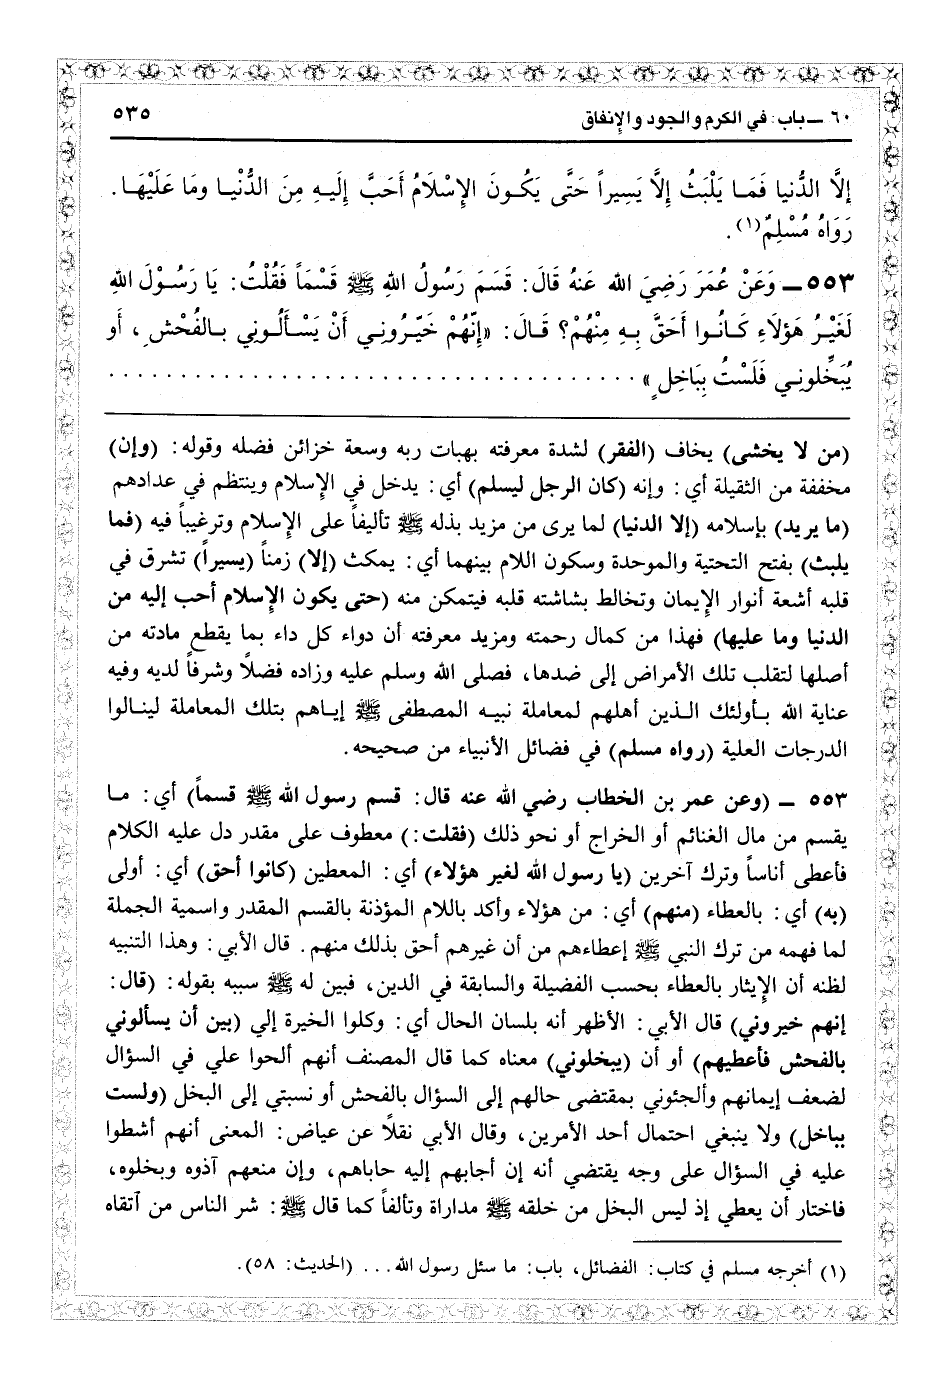 ٦٠ ــ باب: في الكرم والجود والإنفاق
٥٣٥
إلَّا الدُّنيا فَمَا يَلْبَثُ إلَّا يَسِيراً حَتَّى يَكُونَ الإِسْلَامُ أَحَبَّ إلَيهِ مِنَ الدُّنْيا ومَا عَلَيْهَا.
رَوَاهُ مُسْلِمٌ(١).
٥٥٣ــ وَعَنْ عُمَرَ رَضِيَ الله عَنهُ قَالَ: قَسَمَ رَسُولُ اللهِ ﷺ قَسْماً فَقُلْتُ: يَا رَسُوْلَ اللهِ
لَغَيْرُ هَؤلَاءِ كَانُوا أَحَقَّ بِهِ مِنْهُمْ؟ قَالَ: «إنَّهُمْ خَيَّرُونِي أَنْ يَسْأَلُونِي بالفُحْشِ، أَو
يُبَخِّلونِي فَلَسْتُ بِبَاخِلٍ» . . . . . . . . . . . . . . . . . . . . . . . . . . . . . . . . . . . .
(من لا يخشى) يخاف (الفقر) لشدة معرفته بهبات ربه وسعة خزائن فضله وقوله: (وإن)
مخففة من الثقيلة أي: وإنه (كان الرجل ليسلم) أي: يدخل في الإسلام وينتظم في عدادهم
(ما يريد) بإسلامه (إلا الدنيا) لما يرى من مزيد بذله ﷺ تأليفاً على الإسلام وترغيباً فيه (فما
يلبث) بفتح التحتية والموحدة وسكون اللام بينهما أي: يمكث (إلا) زمناً (يسيراً) تشرق في
قلبه أشعة أنوار الإيمان وتخالط بشاشته قلبه فيتمكن منه (حتى يكون الإسلام أحب إليه من
الدنيا وما عليها) فهذا من كمال رحمته ومزيد معرفته أن دواء كل داء بما يقطع مادته من
أصلها لتقلب تلك الأمراض إلى ضدها، فصلى الله وسلم عليه وزاده فضلاً وشرفاً لديه وفيه
عناية الله بأولئك الذين أهلهم لمعاملة نبيه المصطفى ﷺ إياهم بتلك المعاملة لينالوا
الدرجات العلية (رواه مسلم) في فضائل الأنبياء من صحيحه.
٥٥٣ ــ (وعن عمر بن الخطاب رضي الله عنه قال: قسم رسول الله ﷺ قسماً) أي: ما
يقسم من مال الغنائم أو الخراج أو نحو ذلك (فقلت:) معطوف على مقدر دل عليه الكلام
فأعطى أناساً وترك آخرين (يا رسول الله لغير هؤلاء) أي: المعطين (كانوا أحق) أي: أولى
(به) أي: بالعطاء (منهم) أي: من هؤلاء وأكد باللام المؤذنة بالقسم المقدر واسمية الجملة
لما فهمه من ترك النبي ﷺ إعطاءهم من أن غيرهم أحق بذلك منهم. قال الأبي: وهذا التنبيه
لظنه أن الإيثار بالعطاء بحسب الفضيلة والسابقة في الدين، فبين له ﷺ سببه بقوله: (قال:
إنهم خيروني) قال الأبي: الأظهر أنه بلسان الحال أي: وكلوا الخيرة إلي (بين أن يسألوني
بالفحش فأعطيهم) أو أن (يبخلوني) معناه كما قال المصنف أنهم ألحوا علي في السؤال
لضعف إيمانهم وألجئوني بمقتضى حالهم إلى السؤال بالفحش أو نسبتي إلى البخل (ولست
بباخل) ولا ينبغي احتمال أحد الأمرين، وقال الأبي نقلاً عن عياض: المعنى أنهم أشطوا
عليه في السؤال على وجه يقتضي أنه إن أجابهم إليه حاباهم، وإن منعهم آذوه وبخلوه،
فاختار أن يعطي إذ ليس البخل من خلقه ﷺ مداراة وتألفاً كما قال ﷺ: شر الناس من آتقاه
(١) أخرجه مسلم في كتاب: الفضائل، باب: ما سئل رسول الله... (الحديث: ٥٨).